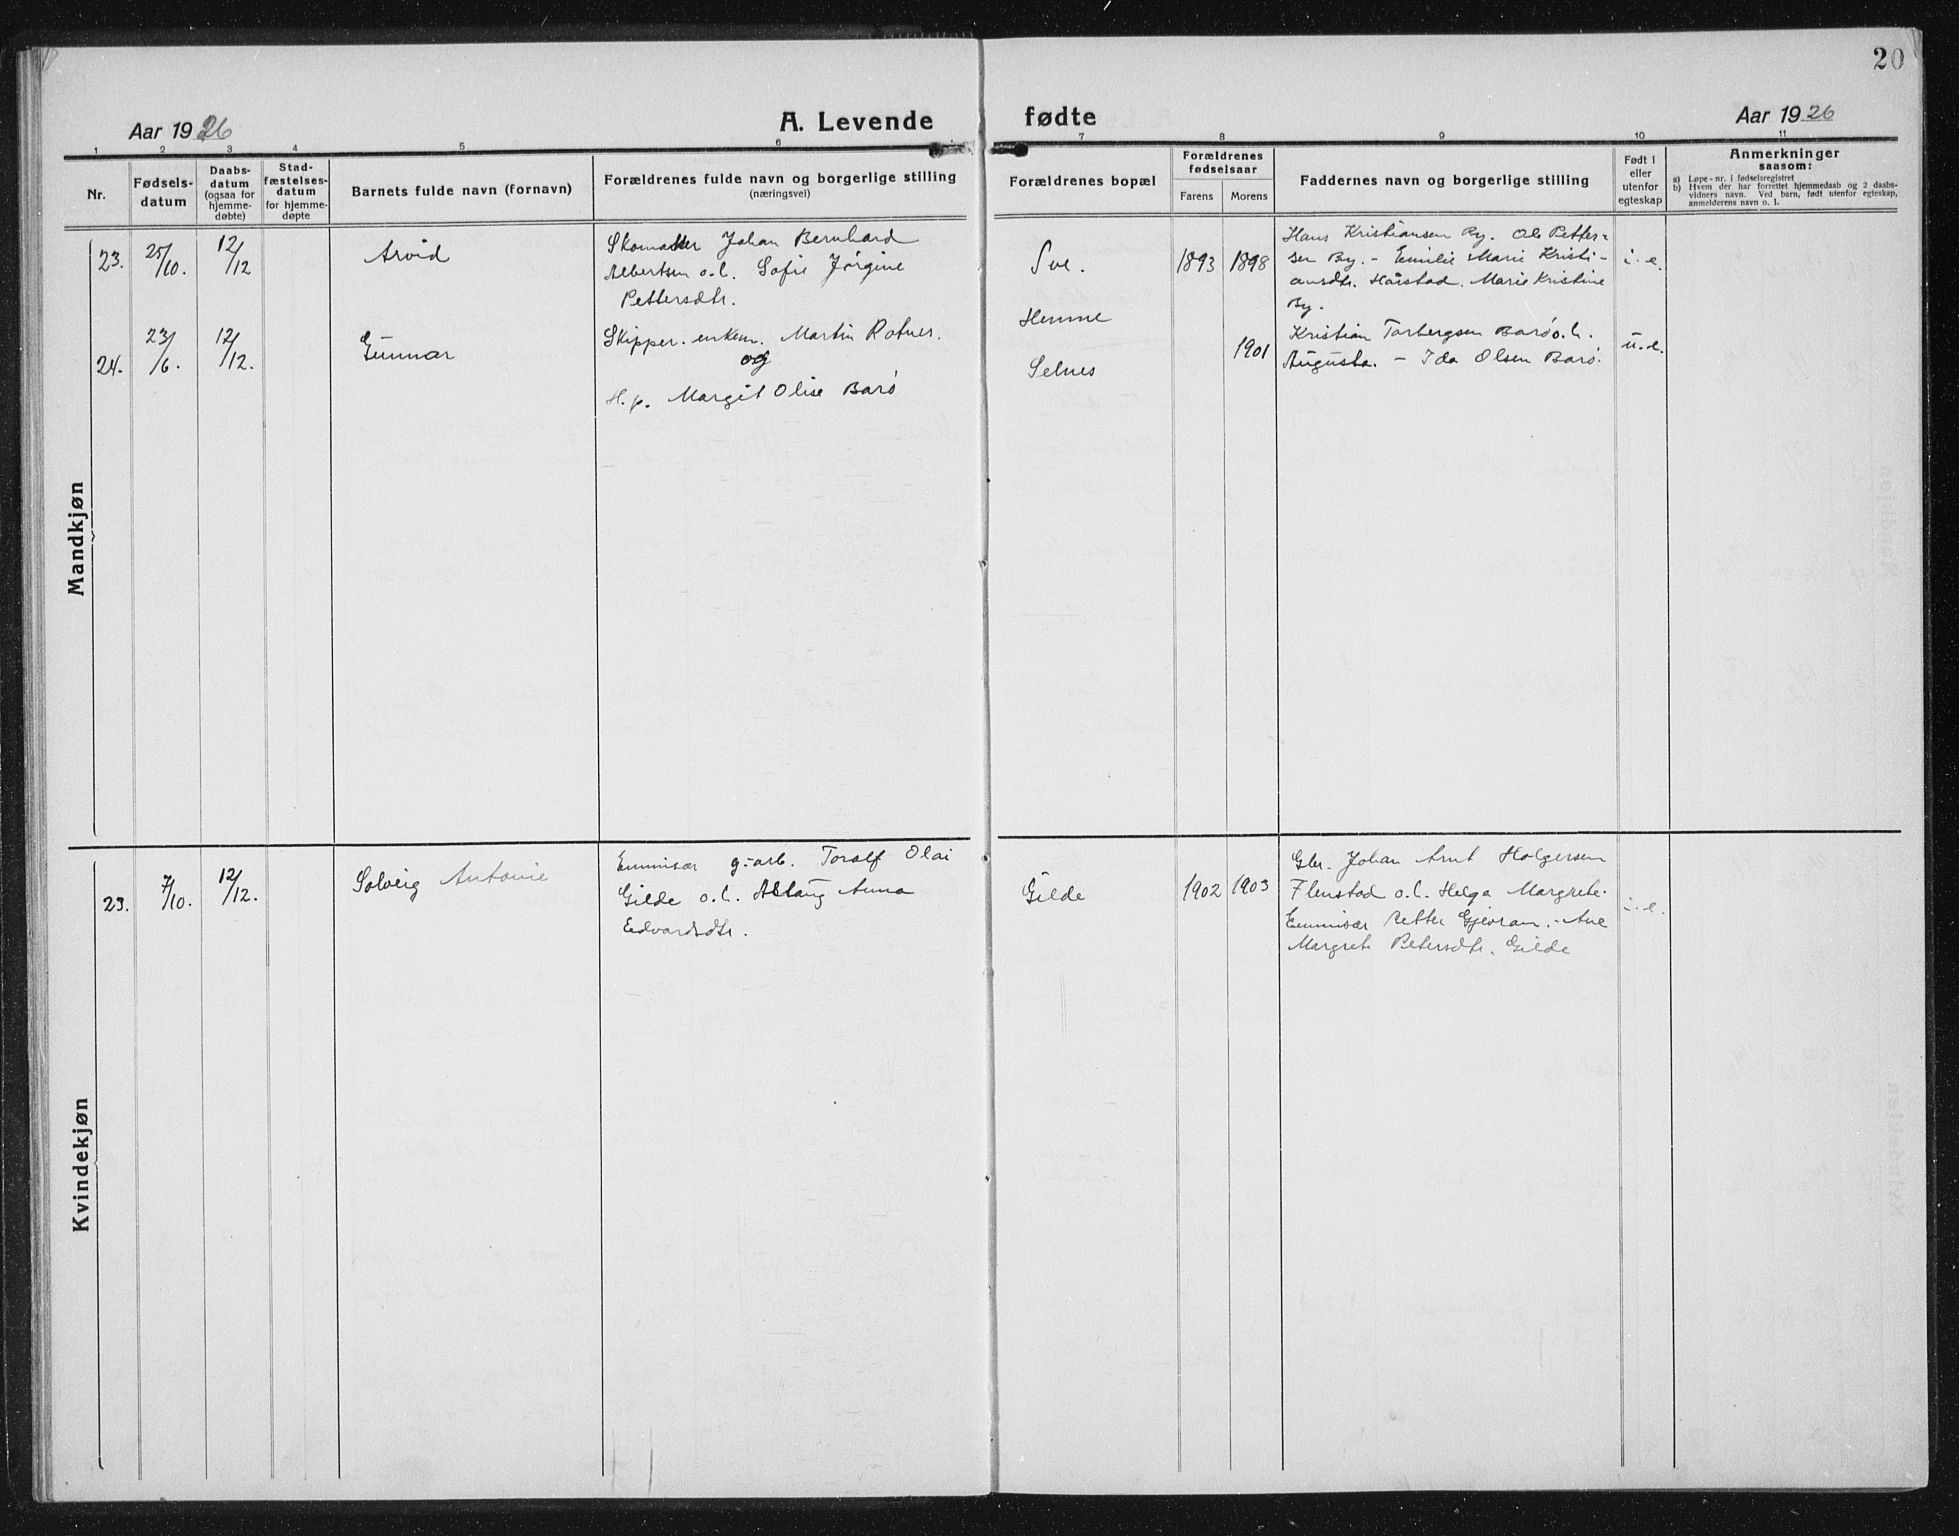 20
Aar 1926
A. Levende
fødte
Aar 1926
1 2 3 4 5 6 7 8 9 10 11
Nr.
Fødsels-
datum
Daabs-
datum
(ogsaa for
hjemme-
døbte)
Stad-
fæstelses-
datum
for hjemme-
døpte
Barnets fulde navn (fornavn)
Forældrenes fulde navn og borgerlige stilling
(næringsvei)
Forældrenes bopæl
Forældrenes
fødselsaar
Farens Morens
Faddernes navn og borgerlige stilling
Født i
eller
utenfor
egteskap
Anmerkninger
saasom:
a) Løpe-nr. i fødselsregistret
b) Hvem der har forrettet hjemmedaab og 2 daabs-
vidners navn. Ved barn, født utenfor egteskap,
anmelderens navn o. l.
Mandkjøn
23. 25/10. 12/12 Arvid
Skomaker Johan Bernhard
Albertsen o.l. Sofie Jørgine
Pettersdtr.
Sve.
1893 1898
Hans Kristiansen By. Ole Petter-
sen By. - Emilie Marie Kristi-
ansdtr. Hårstad. Marie Kristine
By.
i. e.
24. 23/6. 12/12. Gunnar
Skipper. enkem. Martin Rotnes.
og
H.p. Margit Olise Barø
Hemne
Selnes
1901
Kristian Torbergsen Barø o.l.
Augusta. - Ida Olsen Barø.
u. e.
Kvindekjøn
23. 7/10. 12/12. Solveig Antonie
Emmisær g.arb. Toralf Olai
Gilde o.l. Aslaug Anna
Edvardsdtr.
Gilde
1902 1903
Gbr. Johan Arnt Holgersen
Flenstad o.l. Helga Margrete.
Emmisær Petter Gjevran. - Ane
Margrete Petersdtr. Gilde
i. e.